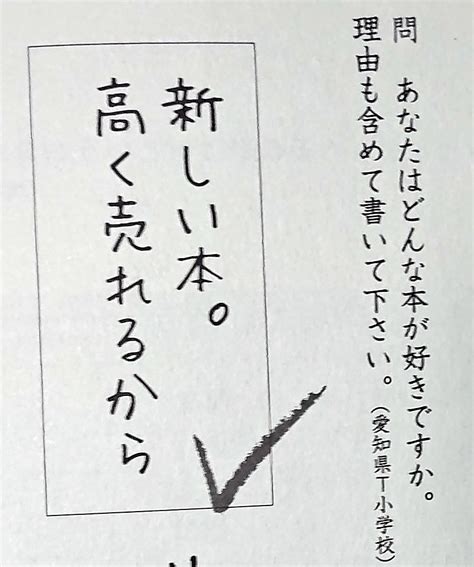 問　あなたはどんな本が好きですか。
理由も含めて書いて下さい。（愛知県T小学校）
新しい本。
高く売れるから